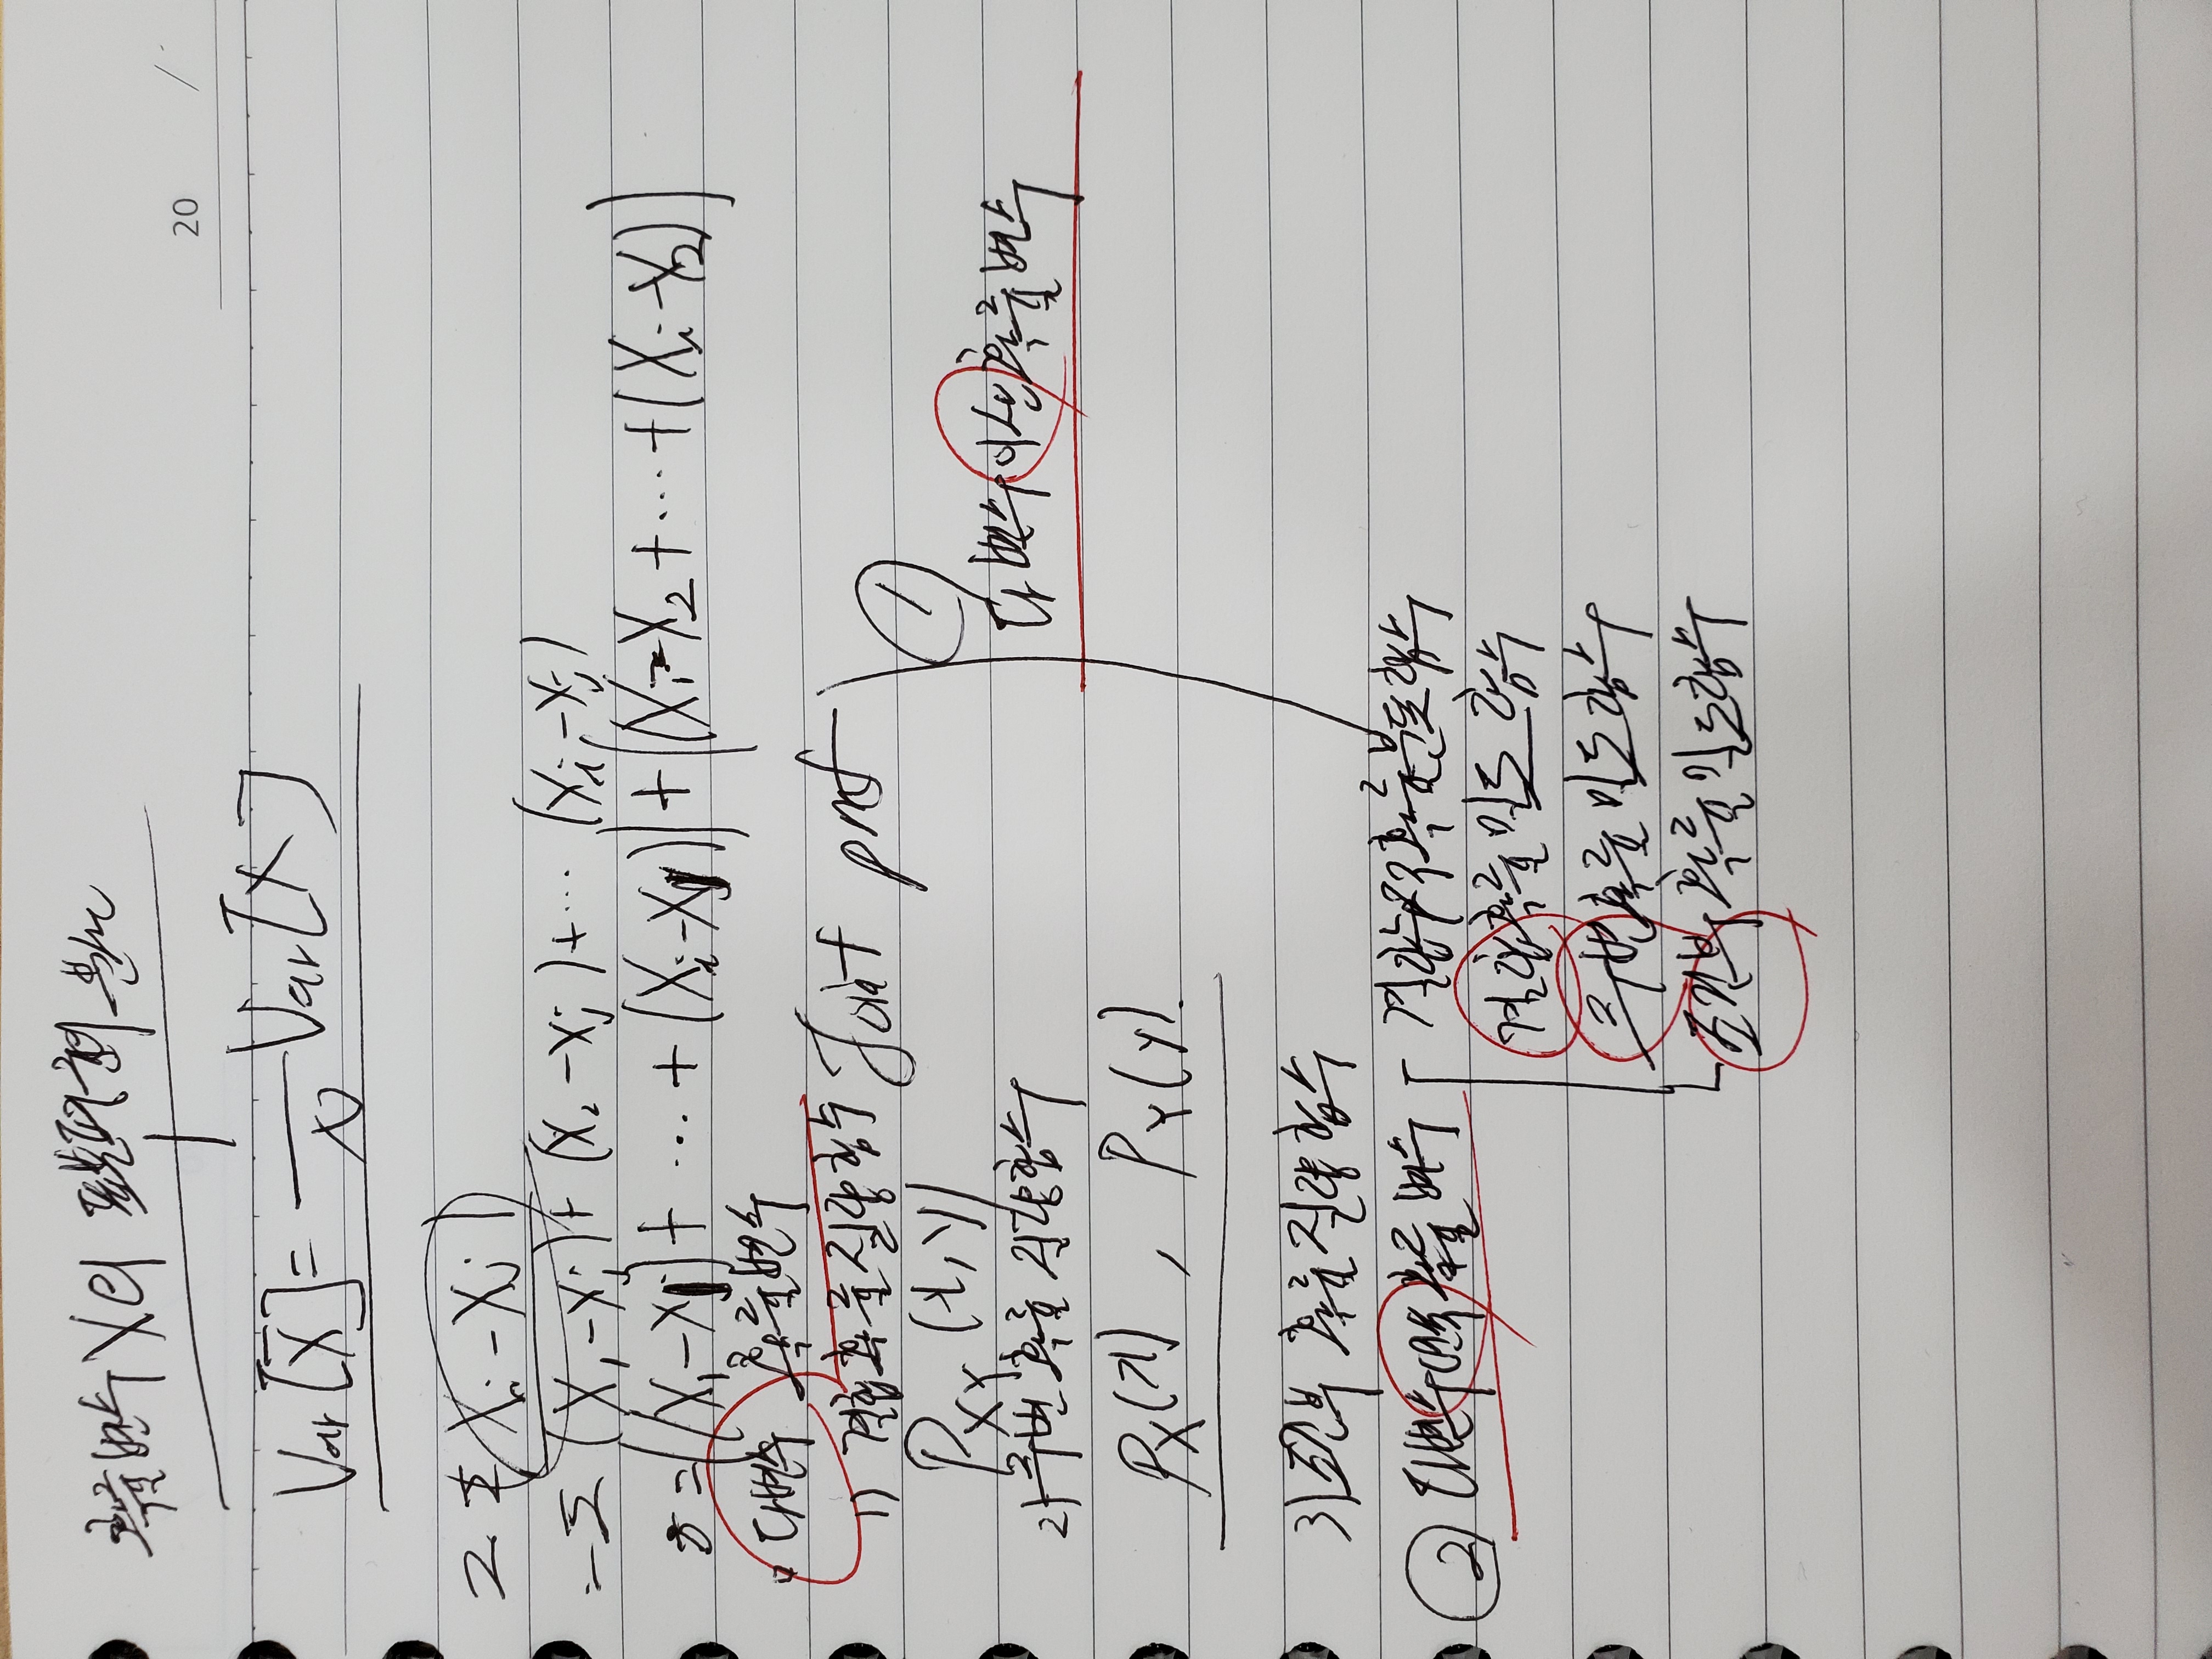 확률변수 X의 표본평균의 분산
20 /
Var[X̄] = 1/N Var[X]
Σ Σ (Xi - Xj)
= Σ (X1 - Xj) + (X2 - Xj) + ··· (Xi - Xj)
= ((X1 - Xj) + ··· + (Xi - Xj)) + (X1 - X2 + ··· + (Xi - X2))
다변수 확률변수
1) 결합확률질량함수 Joint pmf
PXY (x, y)
2) 주변확률질량함수
PX(x) , PY(y).
3) 조건부 확률질량함수
① 다변수 이산확률변수
② 다변수 연속확률변수
결합누적확률분포함수
결합확률밀도함수
주변확률밀도함수
조건부확률밀도함수